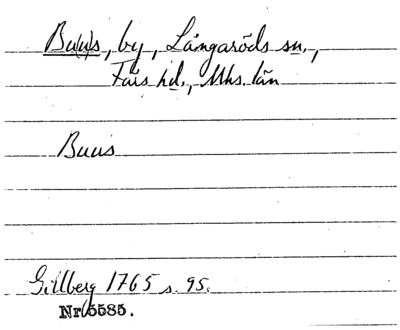 Bu(u)s, by, Långaröds sn.,
Färs hd., Mhs. län
Buus
Gillberg 1765 s. 95.
Nr 5585.